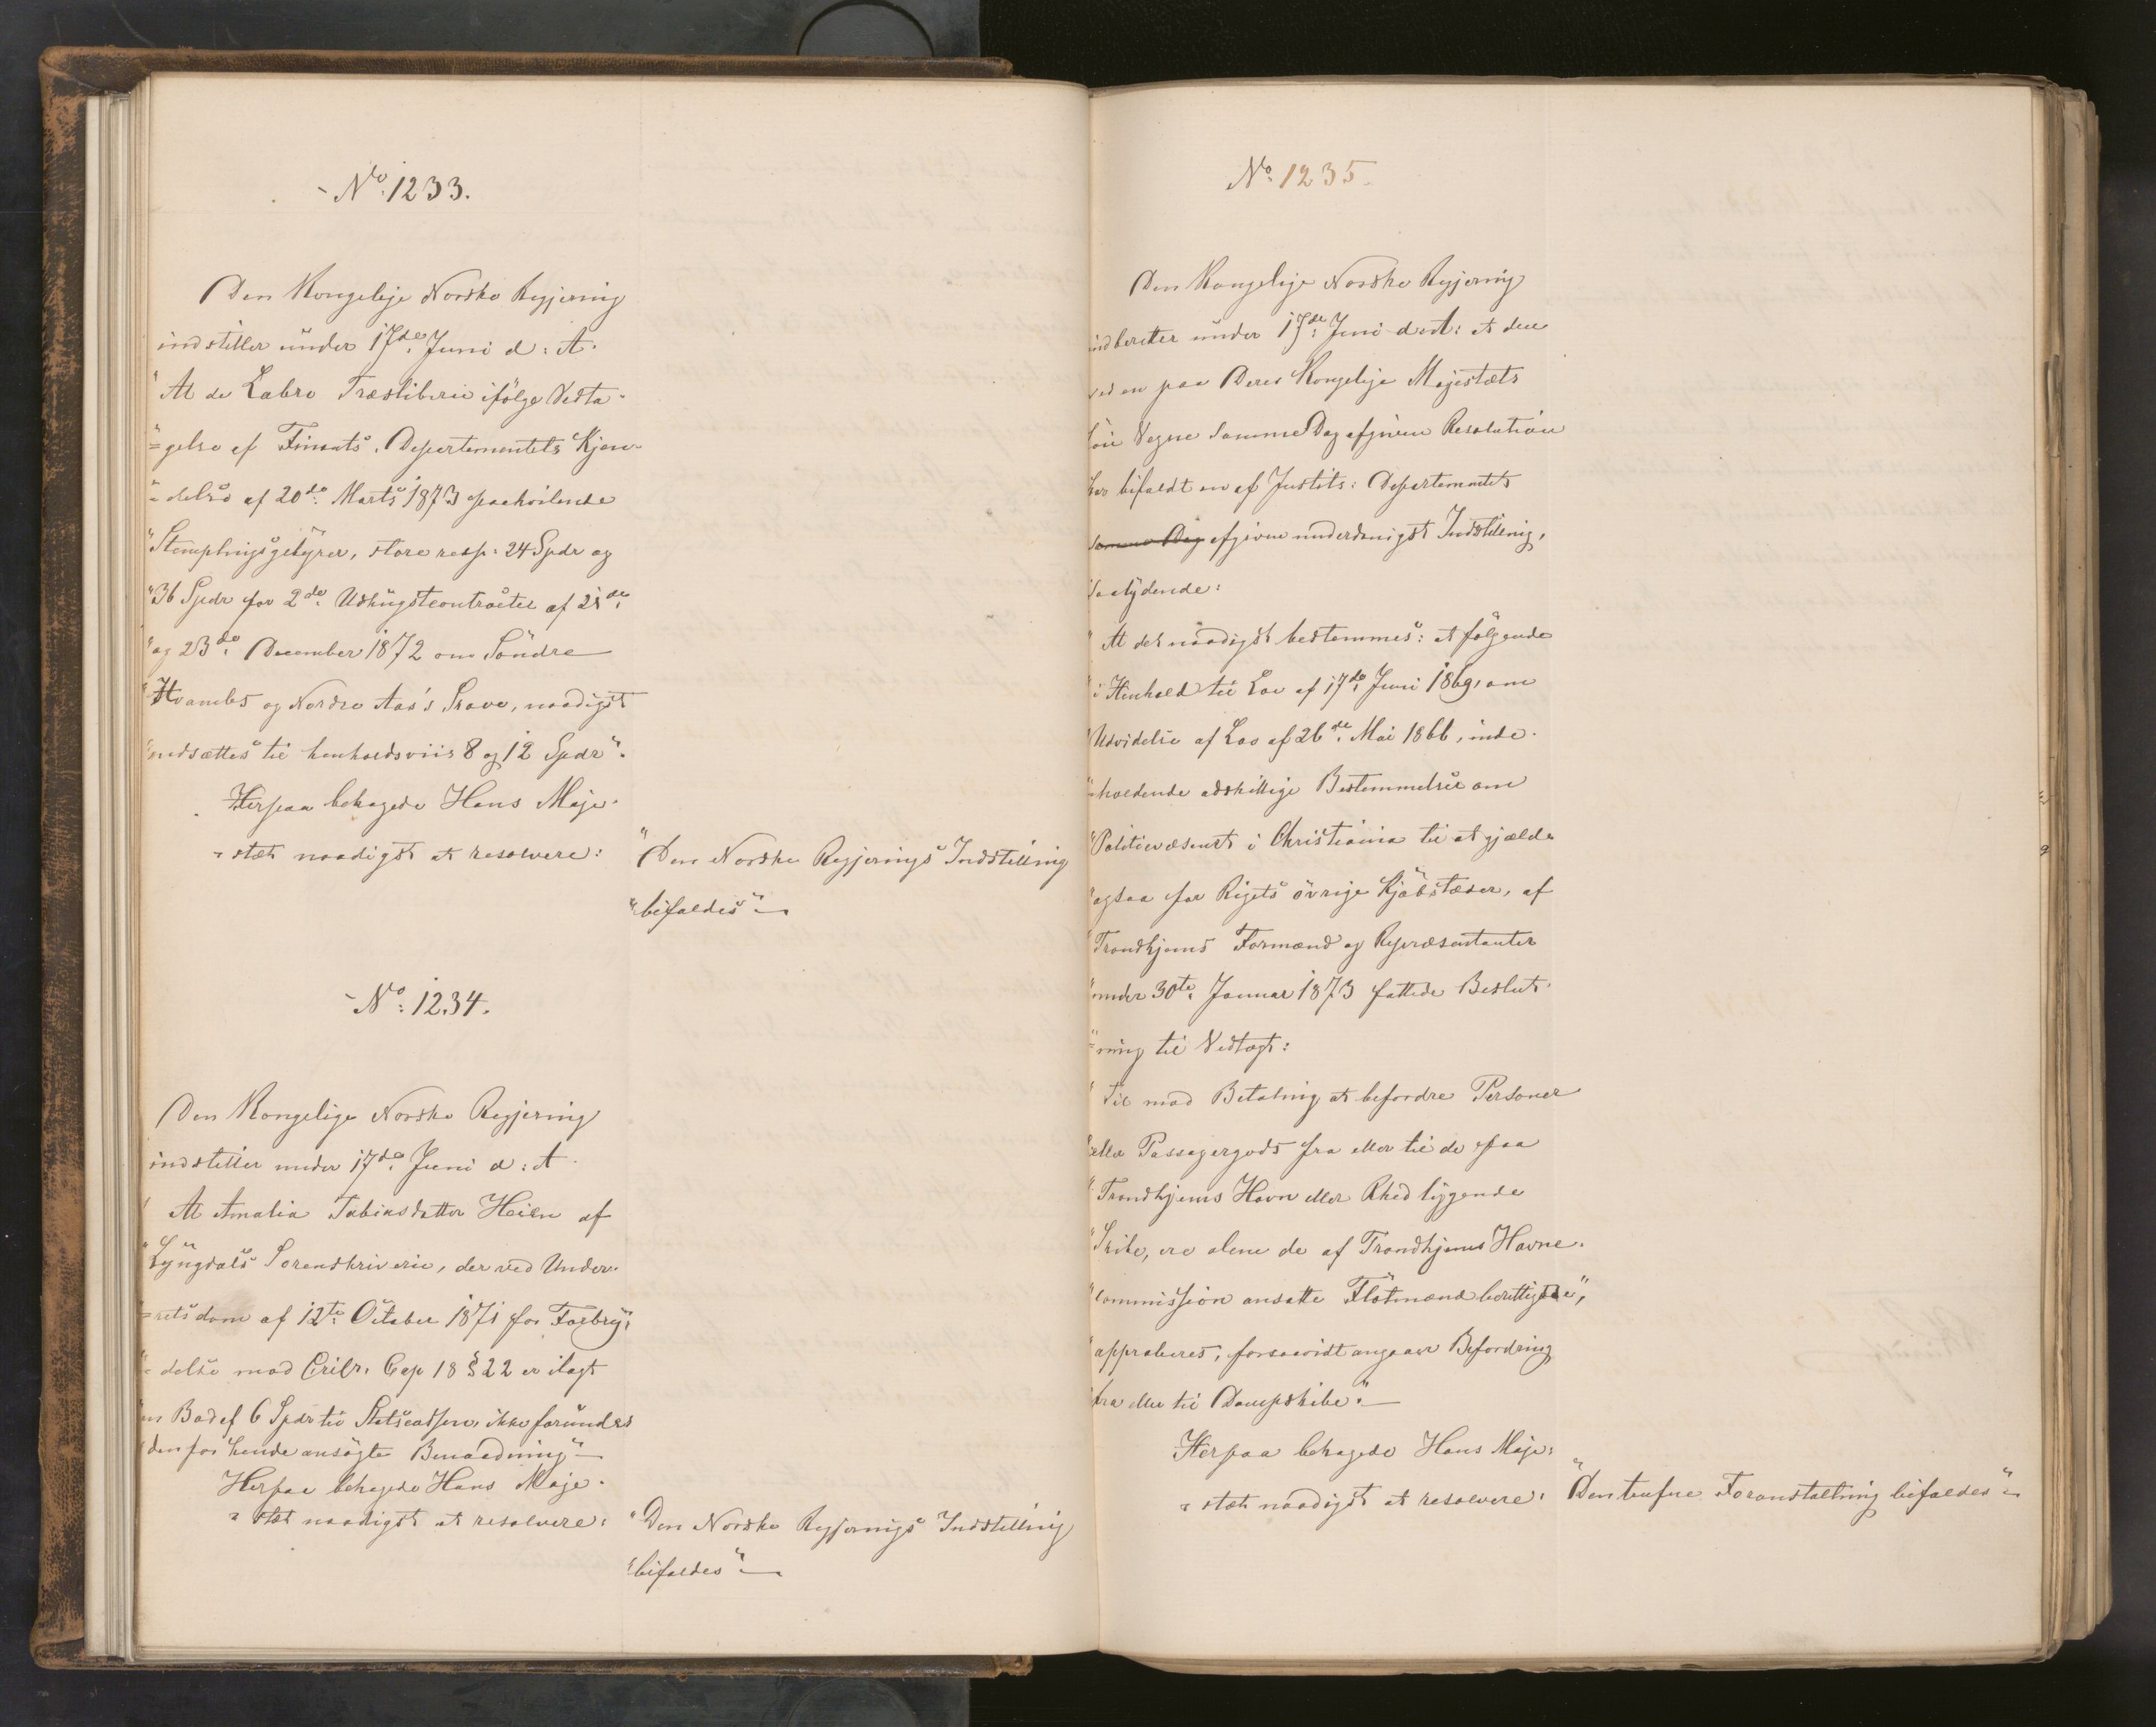 - No: 1233.
Den Kongelige Norske Regjering
indstiller under 17de Juni d: A.
"At de Labro Træsliberie ifölge Vedta-
"=gelse af Finants: Departementets Kjen-
"=delse af 20de Marts 1873 paahvilende
"Stemplingsgebyrer, store resp: 24 Spdr og
"36 Spdr for 2de Udhugstcontracter af 21de
"og 23de December 1872 om Söndre
"Hvambs og Nordre Aas's Skove, naadigst
"nedsættes til henholdsviis 8 og 12 Spdr".
Herpaa behagede Hans Maje-
=stæt naadigst at resolvere:
"Den Norske Regjerings Indstilling
"bifaldes"
- No: 1234.
Den Kongelige Norske Regjering
indstiller under 17de Juni d: A.
"At Amalia Tobiasdatter Heien af
"Lyngdals Sorenskriverie, der ved Under-
"=retsdom af 12te October 1871 for Forbry-
"=delse mod Crilr. Cap 18 § 22 er ilagt
"en Bod af 6 Spdr til Statscassen, ikke forundes
"den for hende ansögte Benaadning"
Herpaa behagede Hans Maje-
=stæt naadigst at resolvere:
"Den Norske Regjerings Indstilling
"bifaldes"
No: 1235.
Den Kongelige Norske Regjering
indberetter under 17de Juni d: A: at den
ved en paa Deres Kongelige Majestæts
Vegne samme Dag afgiven Resolution
har bifaldt en af Justits: Departementets
samme Dag afgivne underdanigst Indstilling,
saalydende:
"At det naadigst bestemmes: at fölgende
"i Henhold til Lov af 17de Juni 1869, om
"Udvidelse af Lov af 26de Mai 1866, inde-
"=holdende adskillige Bestemmelser om
"Politievæsenet i Christiania til at gjælde
"ogsaa for Rigets övrige Kjöbstæder, af
"Trondhjems Formænd og Repræsentanter
"under 30te Januar 1873 fattede Beslut-
"=ning til Vedtægt:
"Til mod Betaling at befordre Personer
"eller Passagergods fra eller til de paa
"Trondhjems Havn eller Rhed liggende
"Skibe, ere alene de af Trondhjems Havne-
"commission ansatte Flötmænd berettigede",
"approberes, forsaavidt angaaer Befordring
"fra eller til Dampskibe".
Herpaa behagede Hans Maje-
=stæt naadigst at resolvere:
"Den trufne Foranstaltning bifaldes"